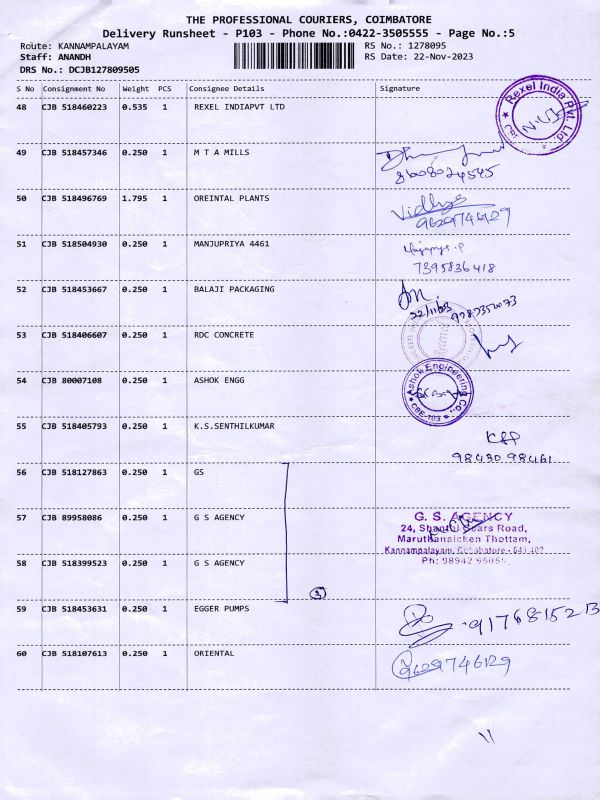 THE PROFESSIONAL COURIERS, COIMBATORE
Delivery Runsheet - P103 - Phone No.:0422-3505555 - Page No.:5
Route: KANNAMPALAYAM
RS No.: 1278095
Staff: ANANDH
RS Date: 22-Nov-2023
DRS No.: DCJB127809505
S No Consignment No Weight PCS Consignee Details Signature
48 CJB 518460223 0.535 1 REXEL INDIAPVT LTD
Rexel India Pvt. Ltd.
49 CJB 518457346 0.250 1 M T A MILLS
8608024545
50 CJB 518496769 1.795 1 OREINTAL PLANTS
Vidhya
9629746129
51 CJB 518504930 0.250 1 MANJUPRIYA 4461
7395836418
52 CJB 518453667 0.250 1 BALAJI PACKAGING
22/11/23
53 CJB 518406607 0.250 1 RDC CONCRETE
54 CJB 80007108 0.250 1 ASHOK ENGG
Ashok Engineering Co.,
CBE-103
55 CJB 518405793 0.250 1 K.S.SENTHILKUMAR
98430 98461
56 CJB 518127863 0.250 1 GS
57 CJB 89958086 0.250 1 G S AGENCY
G. S. AGENCY
24, Shanthi Gears Road,
Maruthanaicken Thottam,
Kannampalayam, Coimbatore - 641 402
58 CJB 518399523 0.250 1 G S AGENCY
3
59 CJB 518453631 0.250 1 EGGER PUMPS
60 CJB 518107613 0.250 1 ORIENTAL
9629746129
11